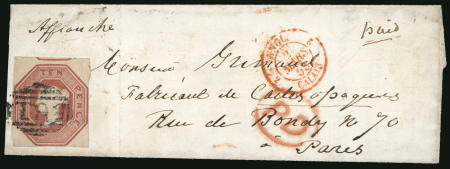 Affranchie
paid
TEN PENCE
Monsieur Grimaud
Fabricant de Cartes opaques
Rue de Bondy No 70
à Paris